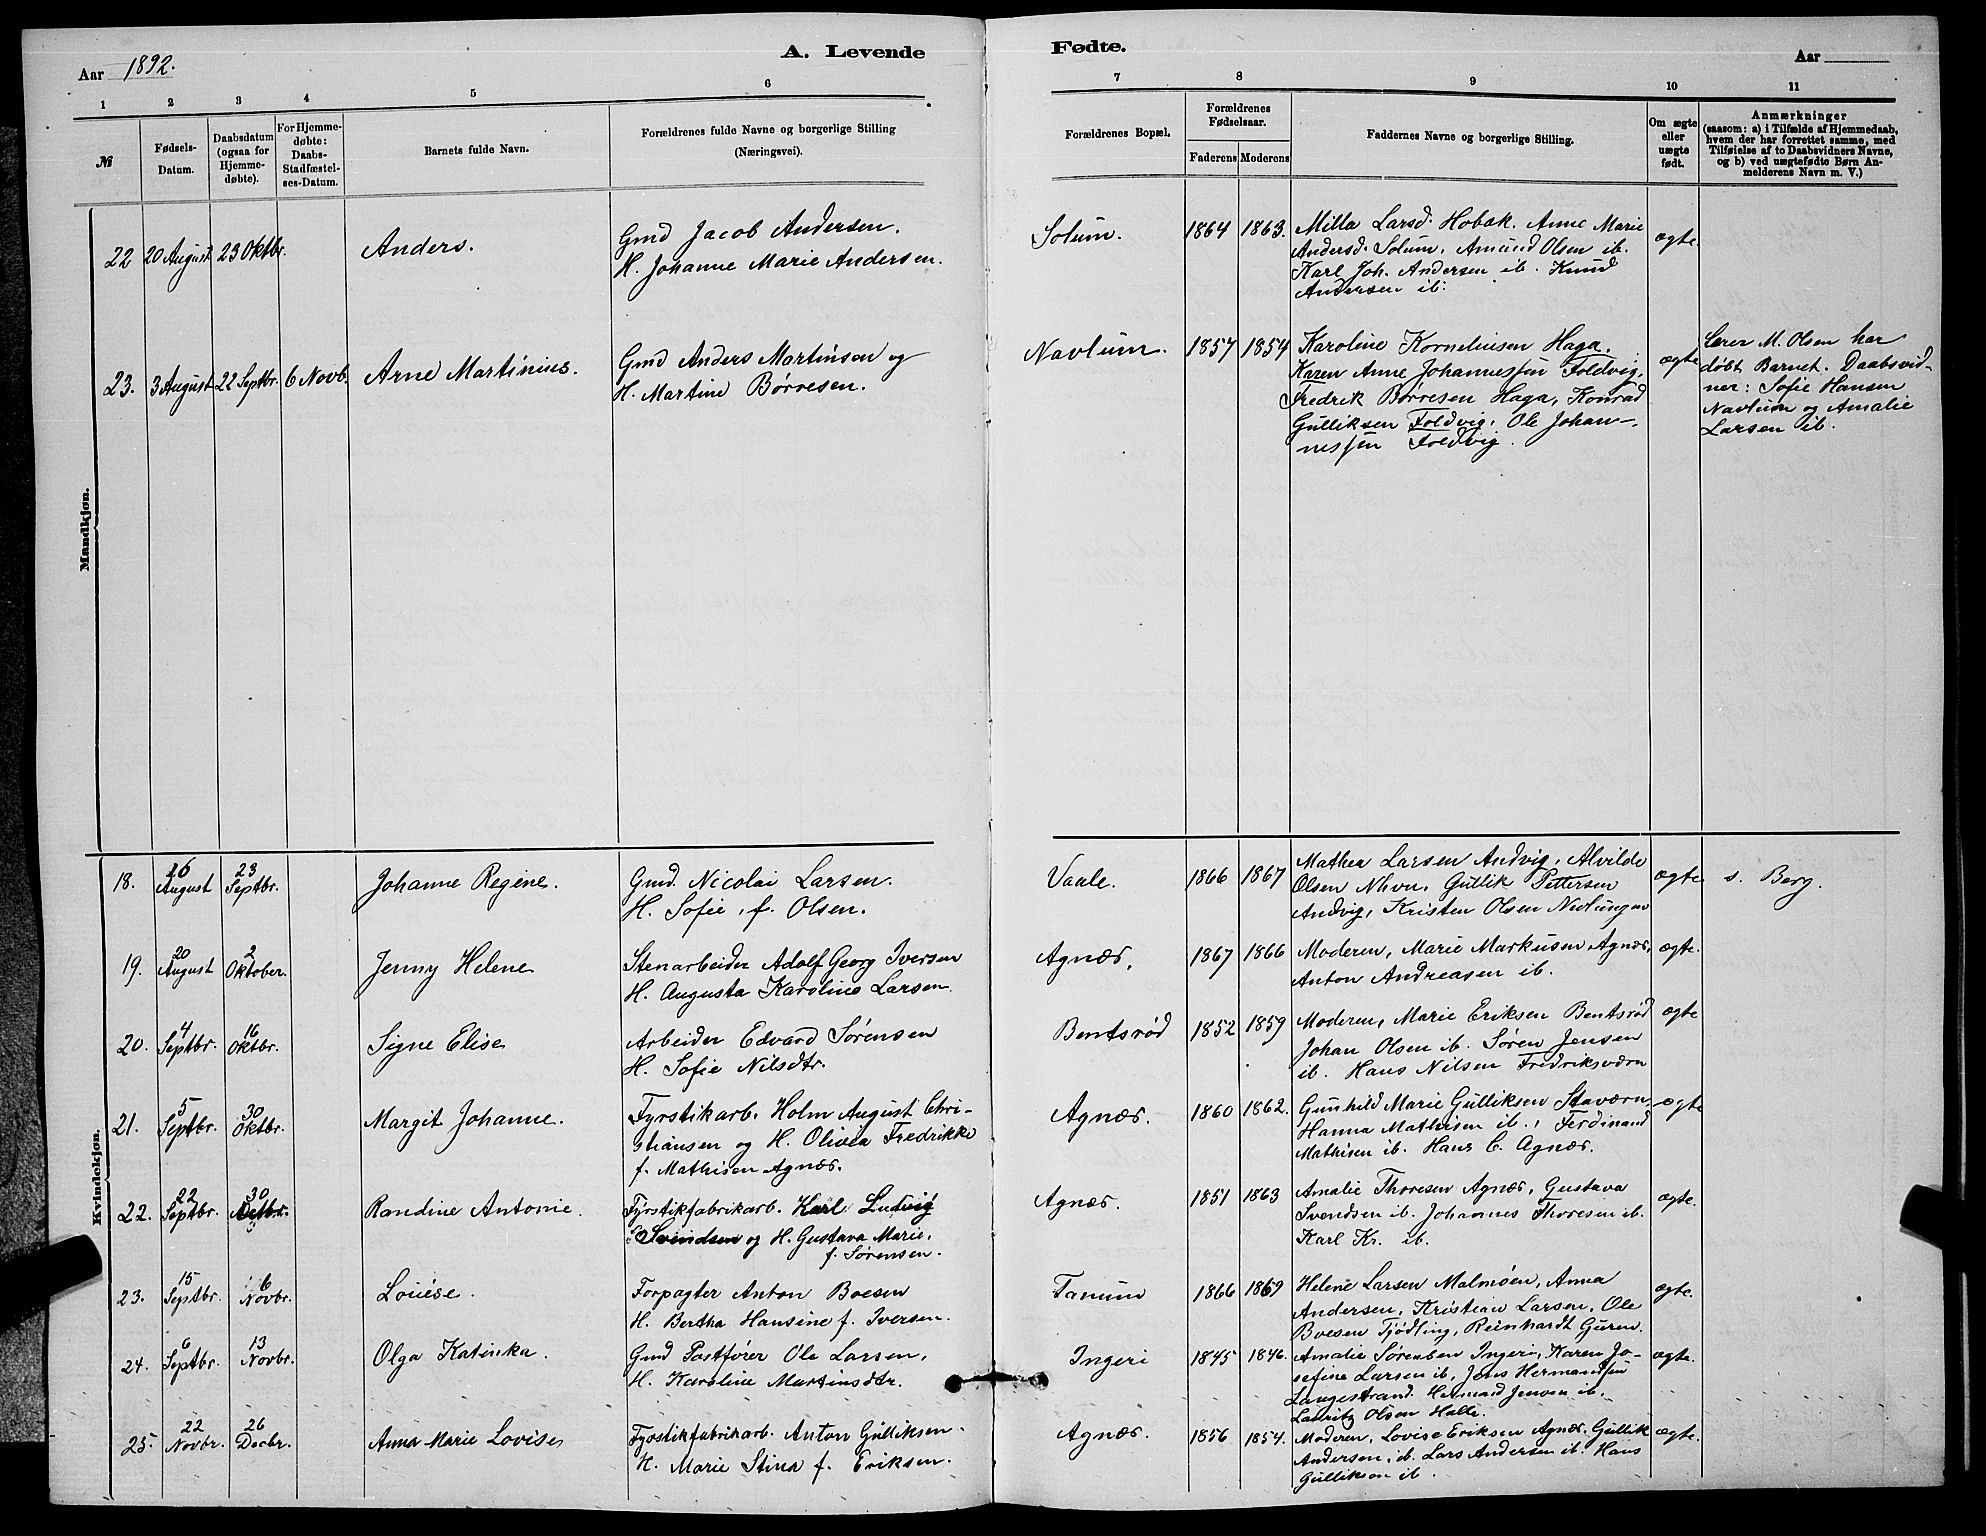 Aar 1892.
A. Levende
Fødte.
Aar
1 2 3 4 5 6
7 8 9 10 11
№
Fødsels-
Datum.
Daabsdatum
(ogsaa for
Hjemme-
døbte).
For Hjemme-
døbte:
Daabs-
Stadfæstel-
ses-Datum.
Barnets fulde Navn.
Forældrenes fulde Navne og borgerlige Stilling
(Næringsvei).
Forældrenes Bopæl.
Forældrenes
Fødselsaar.
Faderens Moderens
Faddernes Navne og borgerlige Stilling.
Om ægte
eller
uægte
født.
Anmærkninger
(saasom: a) i Tilfælde af Hjemmedaab,
hvem der har forrettet samme, med
Tilføielse af to Daabsvidners Navne,
og b) ved uægtefødte Børn An-
melderens Navn m. V.)
Mandkjøn.
22 20 August 23 Oktbr.
Anders.
Gmd Jacob Andersen.
H. Johanne Marie Andersen.
Solum.
1864 1863.
Milla Larsd. Hobæk. Anne Marie
Andersd. Solum, Amund Olsen ib.
Karl Joh. Andersen ib. Knud
Andersen ib.
ægte
23. 3 August 22 Septbr. 6 Novb.
Arne Martinius.
Gmd Anders Martinsen og
H. Martine Børresen.
Navlum.
1857 1854
Karoline Korneliusen Haga.
Karen Anne Johannessen Foldvig,
Fredrik Børresen Haga, Konrad
Gulliksen Foldvig, Ole Johan-
nessen Foldvig.
ægte
Lærer M. Olsen har
døbt Barnet. Daabsvid-
ner: Sofie Hansen
Navlum og Amalie
Larsen ib.
Kvindekjøn.
18. 16 August 23 Septbr.
Johanne Regine.
Gmd. Nicolai Larsen.
H. Sofie, f. Olsen.
Vaale.
1866 1867
Mathea Larsen Andvig, Alvilde
Olsen Nhvn, Gullik Pettersen
Andvig, Kristen Olsen
ægte
s. Berg.
19. 20 August 2 Oktober.
Jenny Helene
Stenarbeider Adolf Georg Iversen
H. Augusta Karoline Larsen.
Agnæs,
1867 1866
Moderen, Marie Markusen Agnæs,
Anton Andreasen ib.
ægte.
20. 4 Septbr. 16 Oktbr.
Signe Elise
Arbeider Edvard Sørensen
H. Sofie Nilsdtr.
Bentsrød
1852 1859
Moderen, Marie Eriksen Bentsrød
Johan Olsen ib. Søren Jensen
ib. Hans Nilsen Fredriksværn
ægte
21. 5 Septbr. 30 Oktbr.
Margit Johanne.
Fyrstikarb. Holm August Chri-
stiansen og H. Olivia Fredrikke
f. Mathisen Agnæs.
Agnæs.
1860 1862.
Gunhild Marie Gulliksen Staværn
Hanna Mathisen ib., Ferdinand
Mathisen ib. Hans C. Agnæs.
ægte
22. 22 Septbr. 30
Randine Antonie.
Fyrstikfabrikarb. Karl Ludvig
Svendsen og H. Gustava Marie,
f. Sørensen.
Agnæs.
1851 1863
Amalie Thoresen Agnæs, Gustava
Svendsen ib. Johannes Thoresen ib.
Karl Kr. ib.
ægte.
23. 15 Septbr. 6 Novbr.
Louise.
Forpagter Anton Boesen
H. Bertha Hansine f. Iversen.
Tanum
1866 1869
Helene Larsen Malmøen, Anna
Andersen, Kristian Larsen, Ole
Boesen Tjødling, Reinhardt Guren.
ægte.
24. 6 Septbr. 13 Novbr.
Olga Katinka.
Gmd Postfører Ole Larsen,
H. Karoline Martinsdtr.
Ingeri
1845 1846.
Amalie Sørensen Ingeri, Karen Jo-
sefine Larsen ib, Jons Hermansen
Langestrand. Herman Jensen ib.
Lauritz Olsen Halle.
ægte.
25. 22 Novbr. 26 Decbr.
Anna Marie Lovise
Fyrstikfabrikarb. Anton Gulliksen.
H. Marie Stina f. Eriksen.
Agnæs.
1856 1854.
Moderen, Lovise Eriksen Agnæs, Gullik
Andersen, ib. Lars Andersen ib. Hans
Gulliksen ib.
ægte.